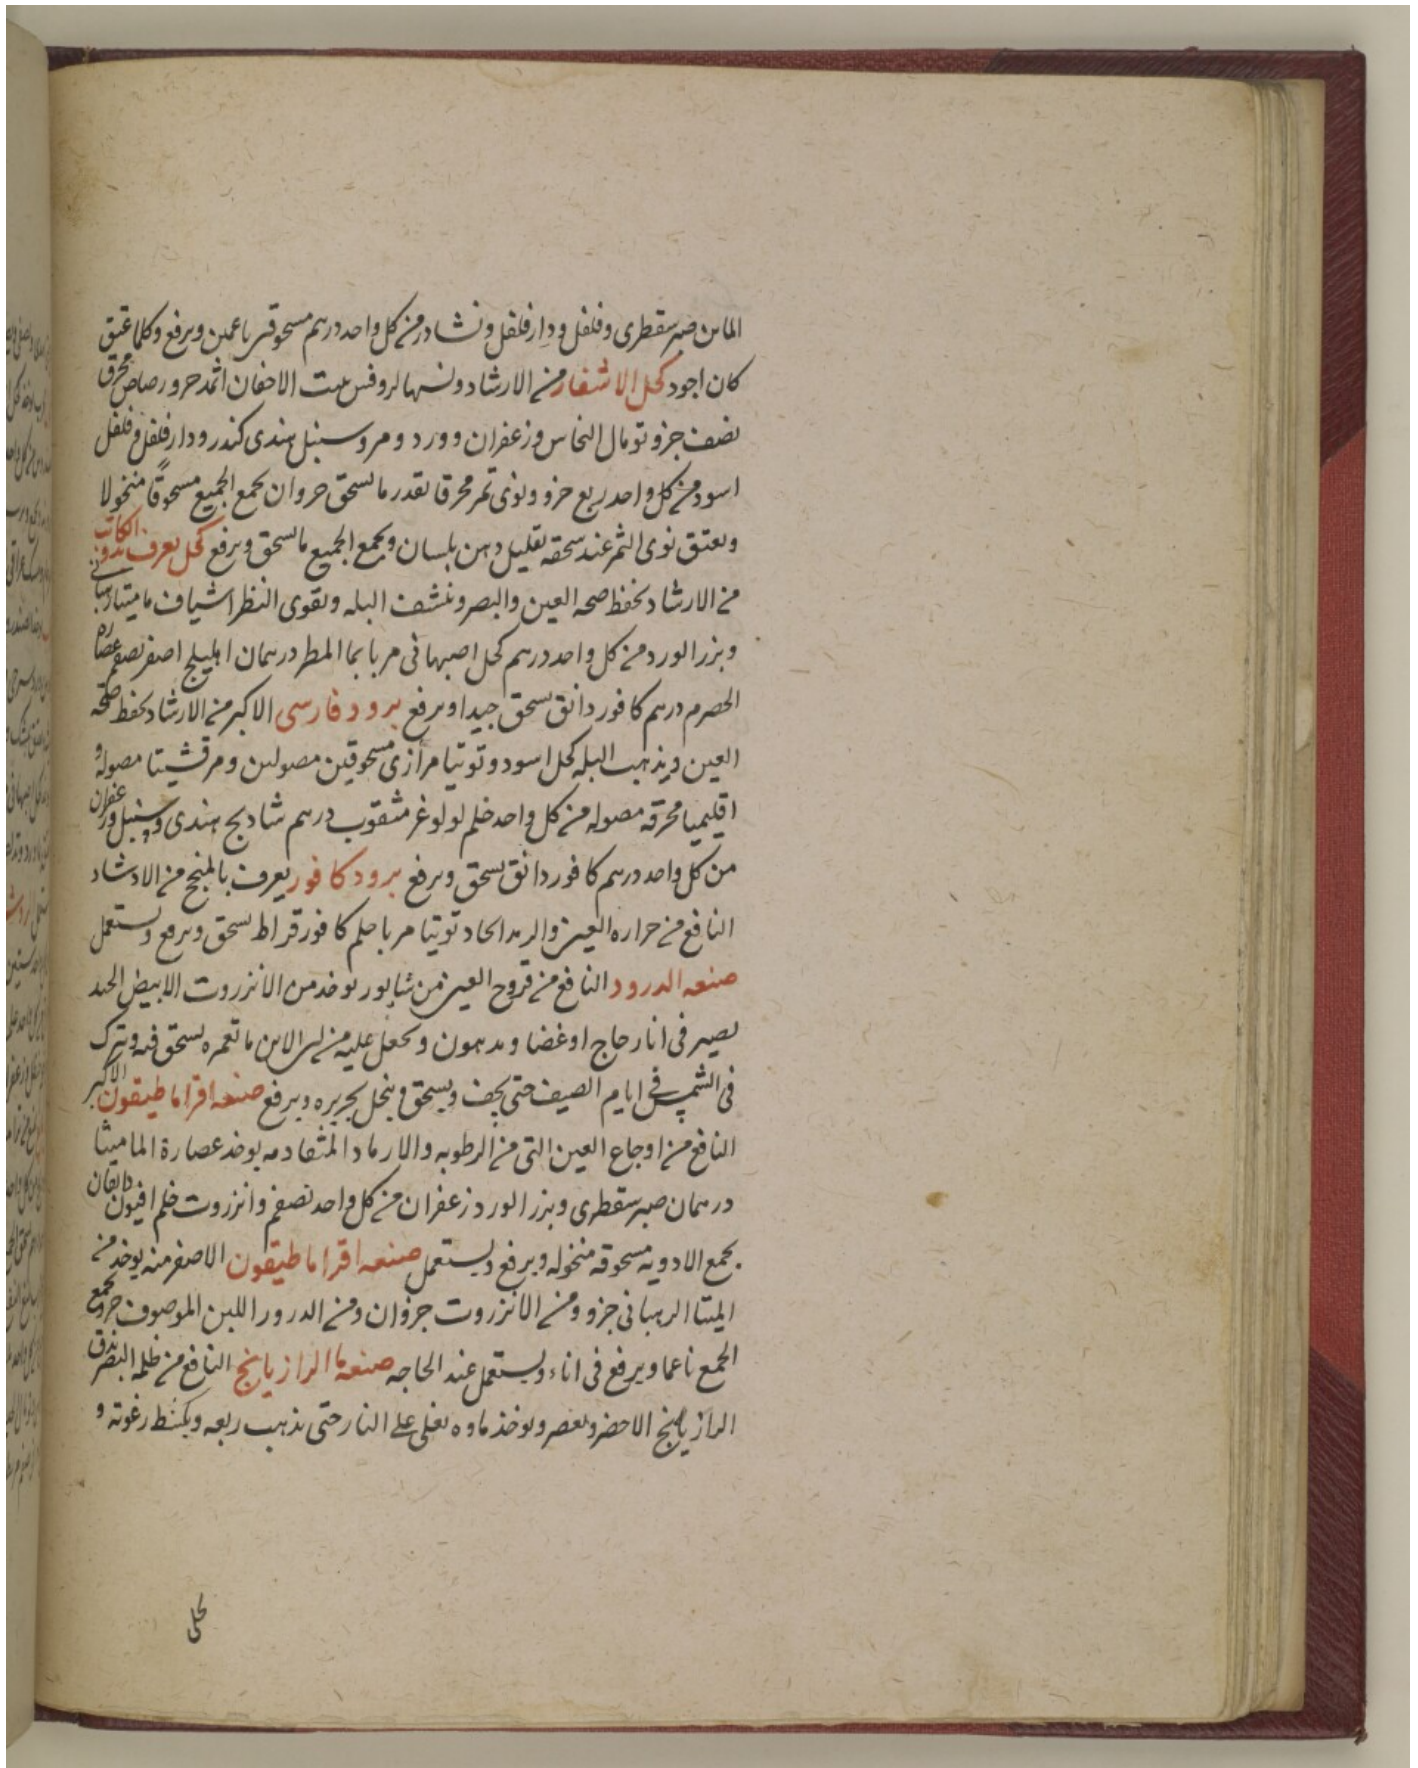 صبر سقطرى وفلفل ودارفلفل ونشادر من كل واحد درهم ويرفع وكلما عتق
كان اجود كحل الاشفار من الارشاد الاجفان اثمد جزو رصاص محرق
نصف جزو توبال النحاس وزعفران وورد ومر وسنبل هندى كندر ودارفلفل وفلفل
اسود من كل واحد ربع جزو ونوى تمر محرقا بقدر ما يسحق جزوان يجمع الجميع مسحوقًا منخولا
ويعتق نوى التمر عند سحقه بقليل دهن بلسان ويجمع الجميع ما يسحق ويرفع كحل يعرف
من الارشاد يحفظ صحه العين والبصر وينشف البله ويقوى النظر اشياف ماميثا
وبزر الورد من كل واحد درهم كحل اصبهانى مربا بما المطر درهمان اهليلج اصفر نصف عصاره
الحصرم درهم كافور دانق يسحق جيدا ويرفع برود فارسى الاكبر من الارشاد يحفظ صحه
العين ويذهب البله كحل اسود وتوتيا مرازى مسحوقين مصولين ومرقشيتا مصوله و
اقليميا محرقه مصوله من كل واحد لولو غير مثقوب درهم شادنج هندى وسنبل وزعفران
من كل واحد درهم كافور دانق يسحق ويرفع برود كافور يعرف بالمنجح من الارشاد
النافع من حراره العين والرمد الحاد توتيا مربا كافور قراط يسحق ويرفع ويستعمل
صنعه الدرود النافع من قروح العين من شابور يوخذ من الانزروت الابيض الجيد
يصير فى انا زجاج او غضا ومدهون ويجعل عليه من لبن الاتن ما تغمره يسحق فيه ويترك
فى الشمس فى ايام الصيف حتى يجف ويسحق وينخل بحريره ويرفع صنعه اقراماطيقون الاكبر
النافع من اوجاع العين التى من الرطوبه والارماد المتقادمه يوخذ عصارة الماميثا
درهمان صبر سقطرى وبزر الورد زعفران من كل واحد نصف وانزروت افيون دانقان
يجمع الادويه مسحوقه منخوله ويرفع ويستعمل صنعه اقراماطيقون الاصفر منه يوخذ من
الرهبانى جزو ومن الانزروت جزوان ومن الدرور اللبن الموصوف جزو يجمع
الجمع ناعما ويرفع فى اناء ويستعمل عند الحاجه صنعه ما الرازيانج النافع من ظلمه البصر يدق
الرازيانج الاخضر ويعصر ويوخذ ماوه يغلى على النار حتى يذهب ربعه ويكشط رغوته و